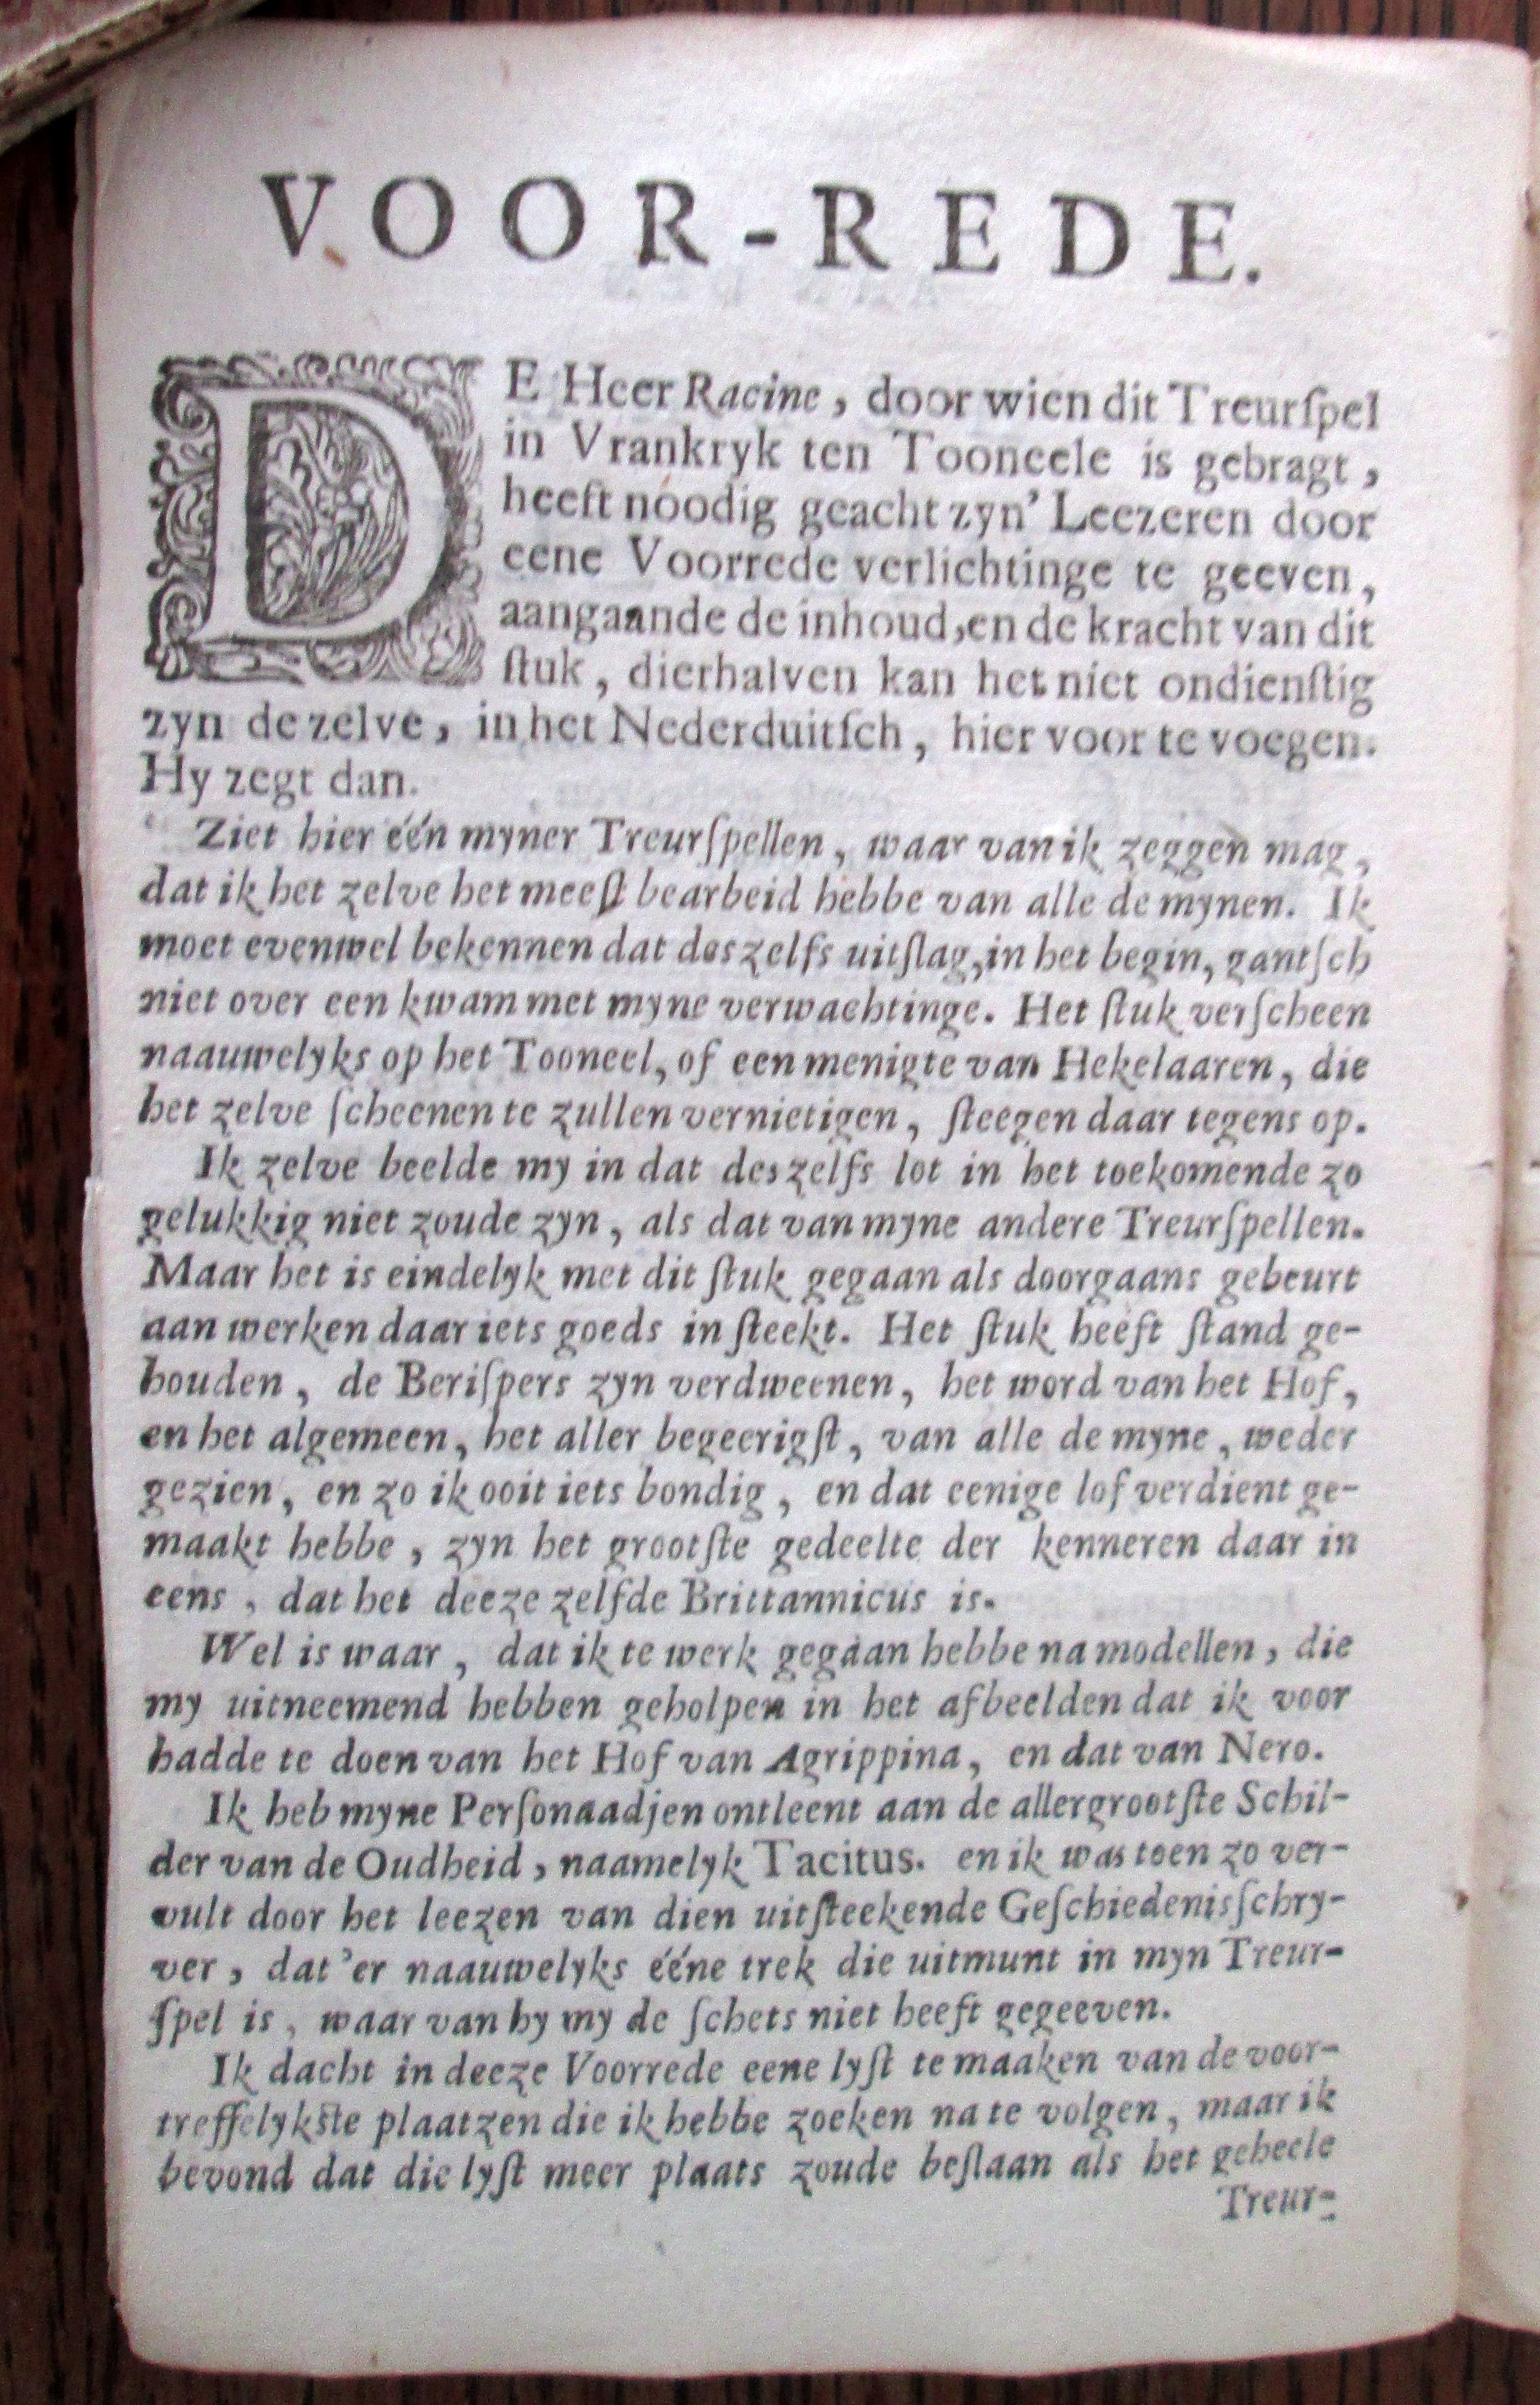 VOOR-REDE.
DE Heer Racine, door wien dit Treurſpel
in Vrankryk ten Tooneele is gebragt,
heeft noodig geacht zyn' Leezeren door
eene Voorrede verlichtinge te geeven,
aangaande de inhoud, en de kracht van dit
ſtuk, dierhalven kan het niet ondienſtig
zyn de zelve, in het Nederduitſch, hier voor te voegen.
Hy zegt dan.
Ziet hier één myner Treurſpellen, waar van ik zeggen mag,
dat ik het zelve het meeſt bearbeid hebbe van alle de mynen. Ik
moet evenwel bekennen dat deszelfs uitſlag, in het begin, gantſch
niet over een kwam met myne verwachtinge. Het ſtuk verſcheen
naauwelyks op het Tooneel, of een menigte van Hekelaaren, die
het zelve ſcheenen te zullen vernietigen, ſteegen daar tegens op.
Ik zelve beelde my in dat deszelfs lot in het toekomende zo
gelukkig niet zoude zyn, als dat van myne andere Treurſpellen.
Maar het is eindelyk met dit ſtuk gegaan als doorgaans gebeurt
aan werken daar iets goeds in ſteekt. Het ſtuk heeft ſtand ge-
houden, de Beriſpers zyn verdweenen, het word van het Hof,
en het algemeen, het aller begeerigſt, van alle de myne, weder
gezien, en zo ik ooit iets bondig, en dat eenige lof verdient ge-
maakt hebbe, zyn het grootſte gedeelte der kenneren daar in
eens, dat het deeze zelfde Brittannicus is.
Wel is waar, dat ik te werk gegaan hebbe na modellen, die
my uitneemend hebben geholpen in het afbeelden dat ik voor
hadde te doen van het Hof van Agrippina, en dat van Nero.
Ik heb myne Perſonaadjen ontleent aan de allergrootſte Schil-
der van de Oudheid, naamelyk Tacitus. en ik was toen zo ver-
vult door het leezen van dien uitſteekende Geſchiedenisſchry-
ver, dat 'er naauwelyks ééne trek die uitmunt in myn Treur-
ſpel is, waar van hy my de ſchets niet heeft gegeeven.
Ik dacht in deeze Voorrede eene lyſt te maaken van de voor-
treffelykſte plaatzen die ik hebbe zoeken na te volgen, maar ik
bevond dat die lyſt meer plaats zoude beſlaan als het geheele
Treur-